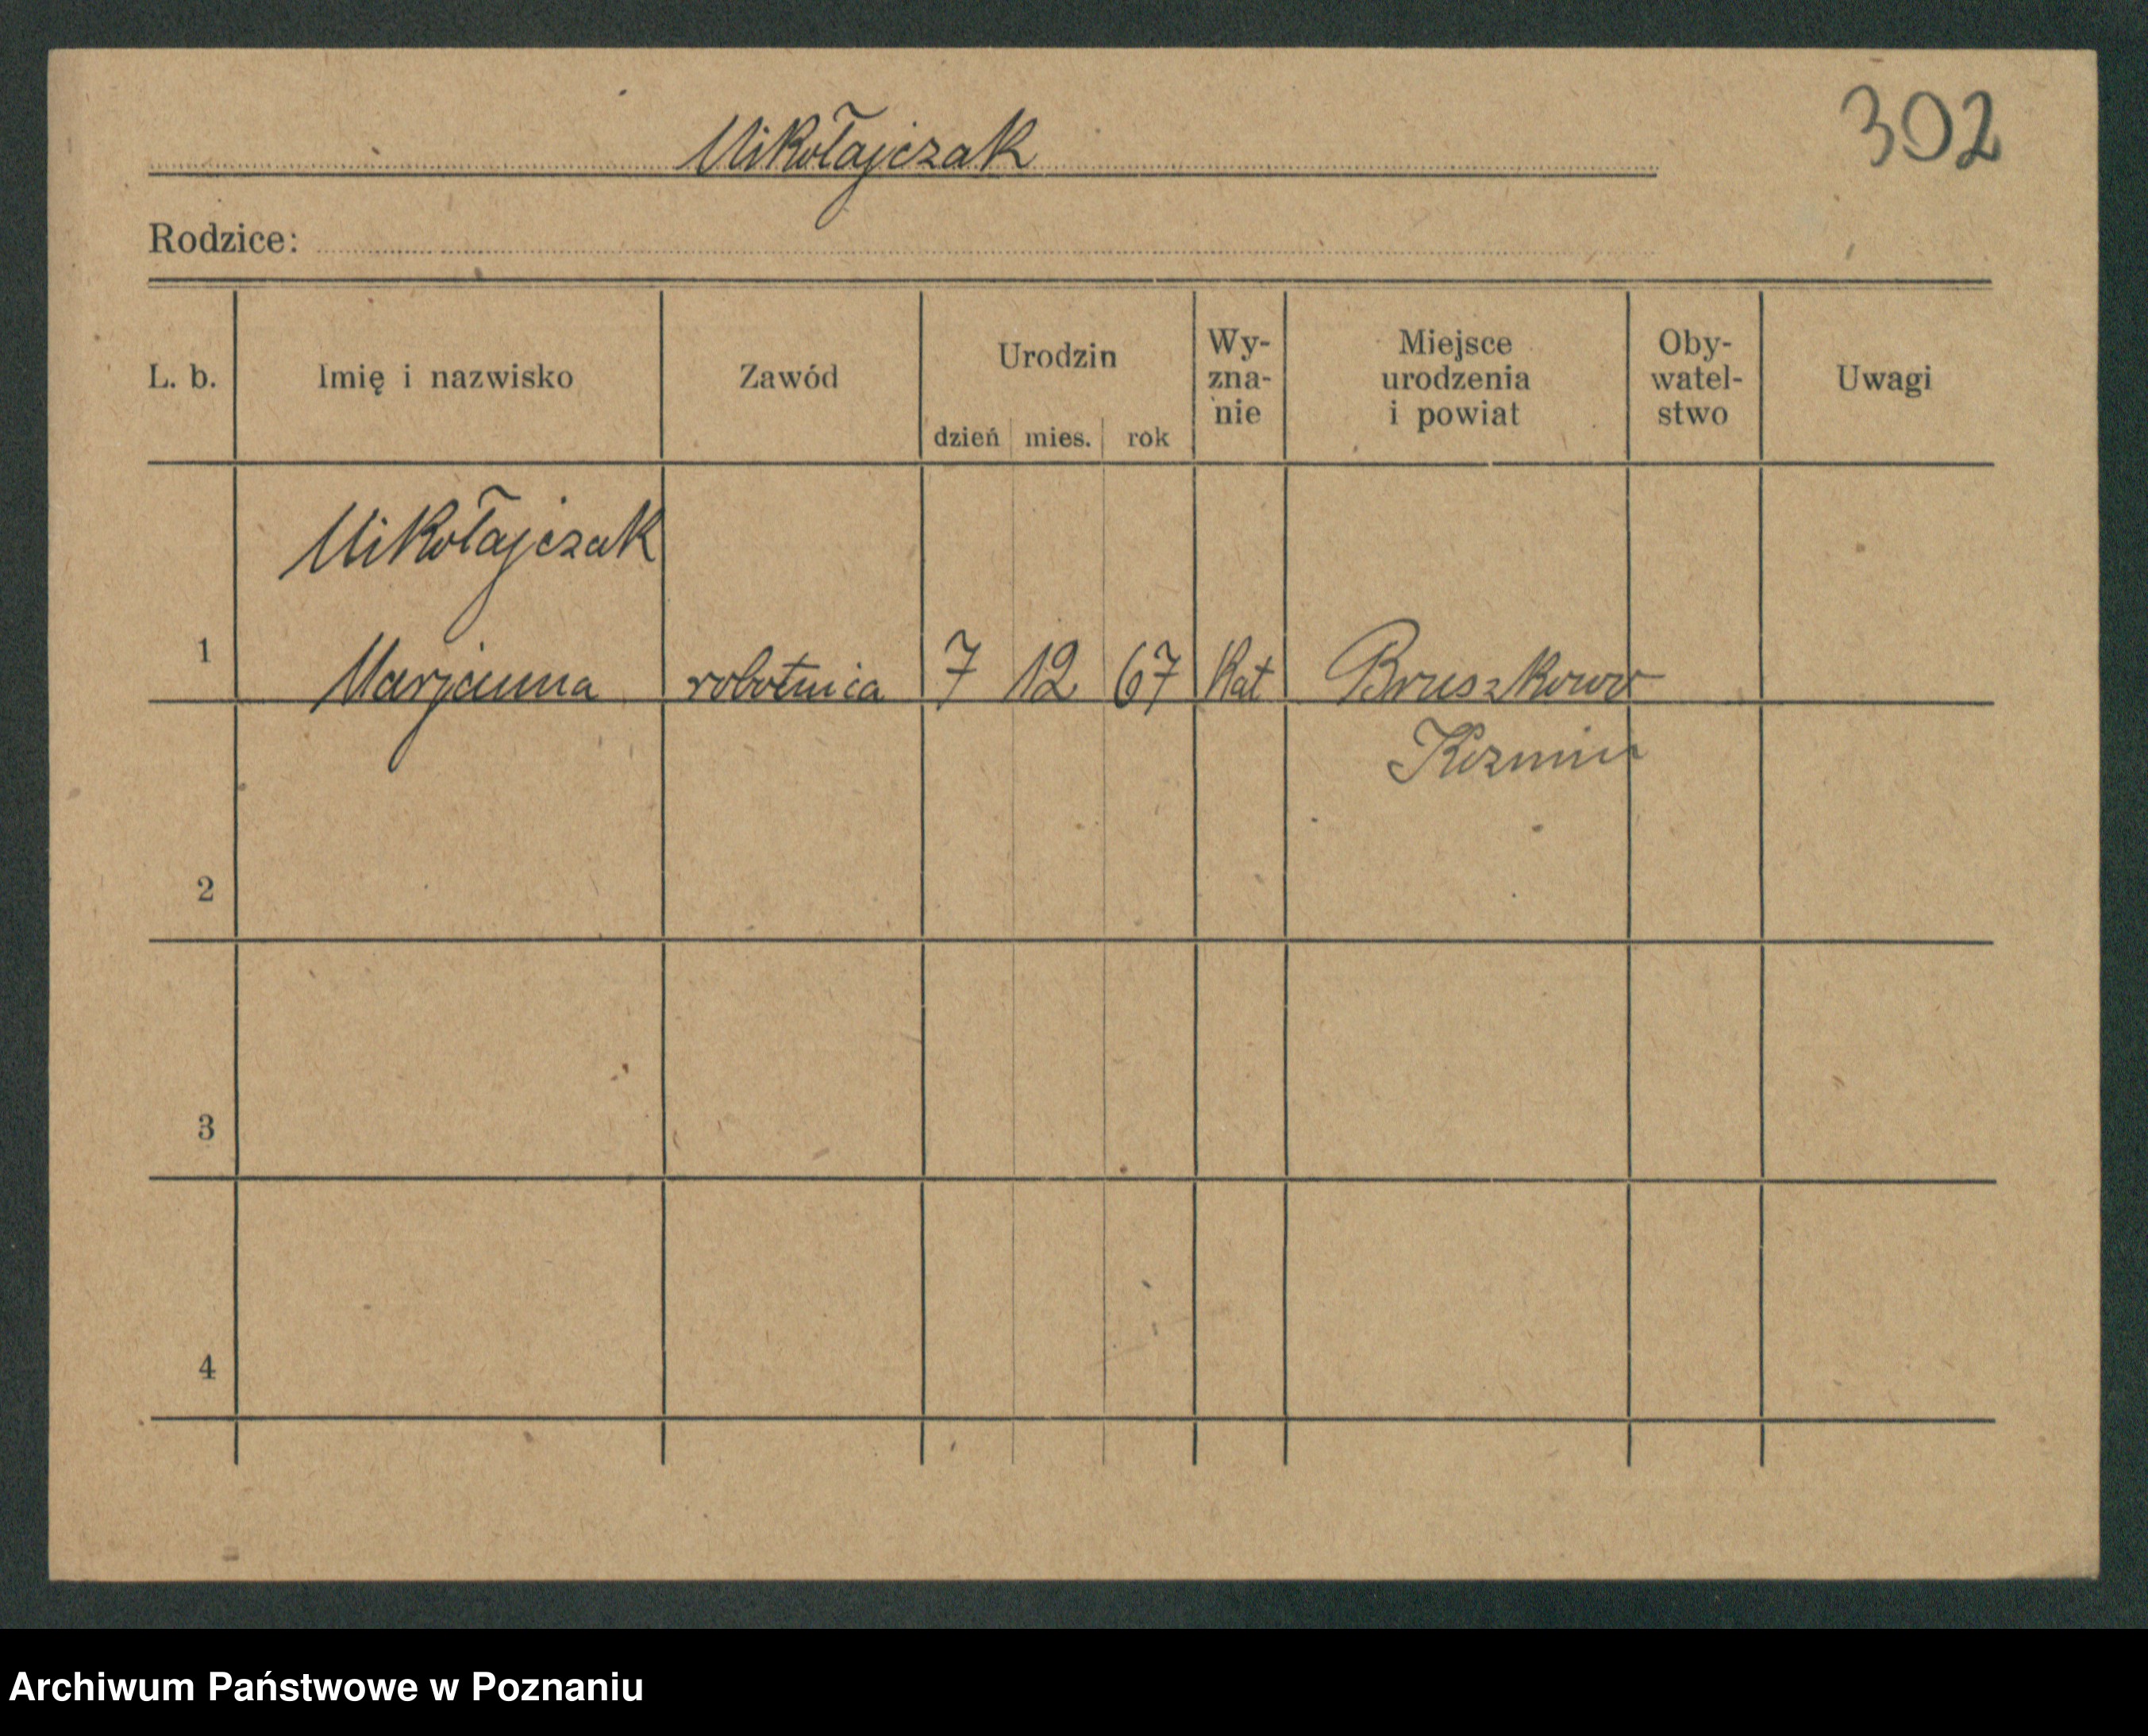 302
Mikołajczak
Rodzice:
L. b. Imię i nazwisko Zawód Urodzin dzień mies. rok Wy-zna-nie Miejsce urodzenia i powiat Oby-watel-stwo Uwagi
Mikołajczak
1 Marjanna robotnica 7 12 67 Kat Bruszkowo
Kozmin
2
3
4
Archiwum Państwowe w Poznaniu